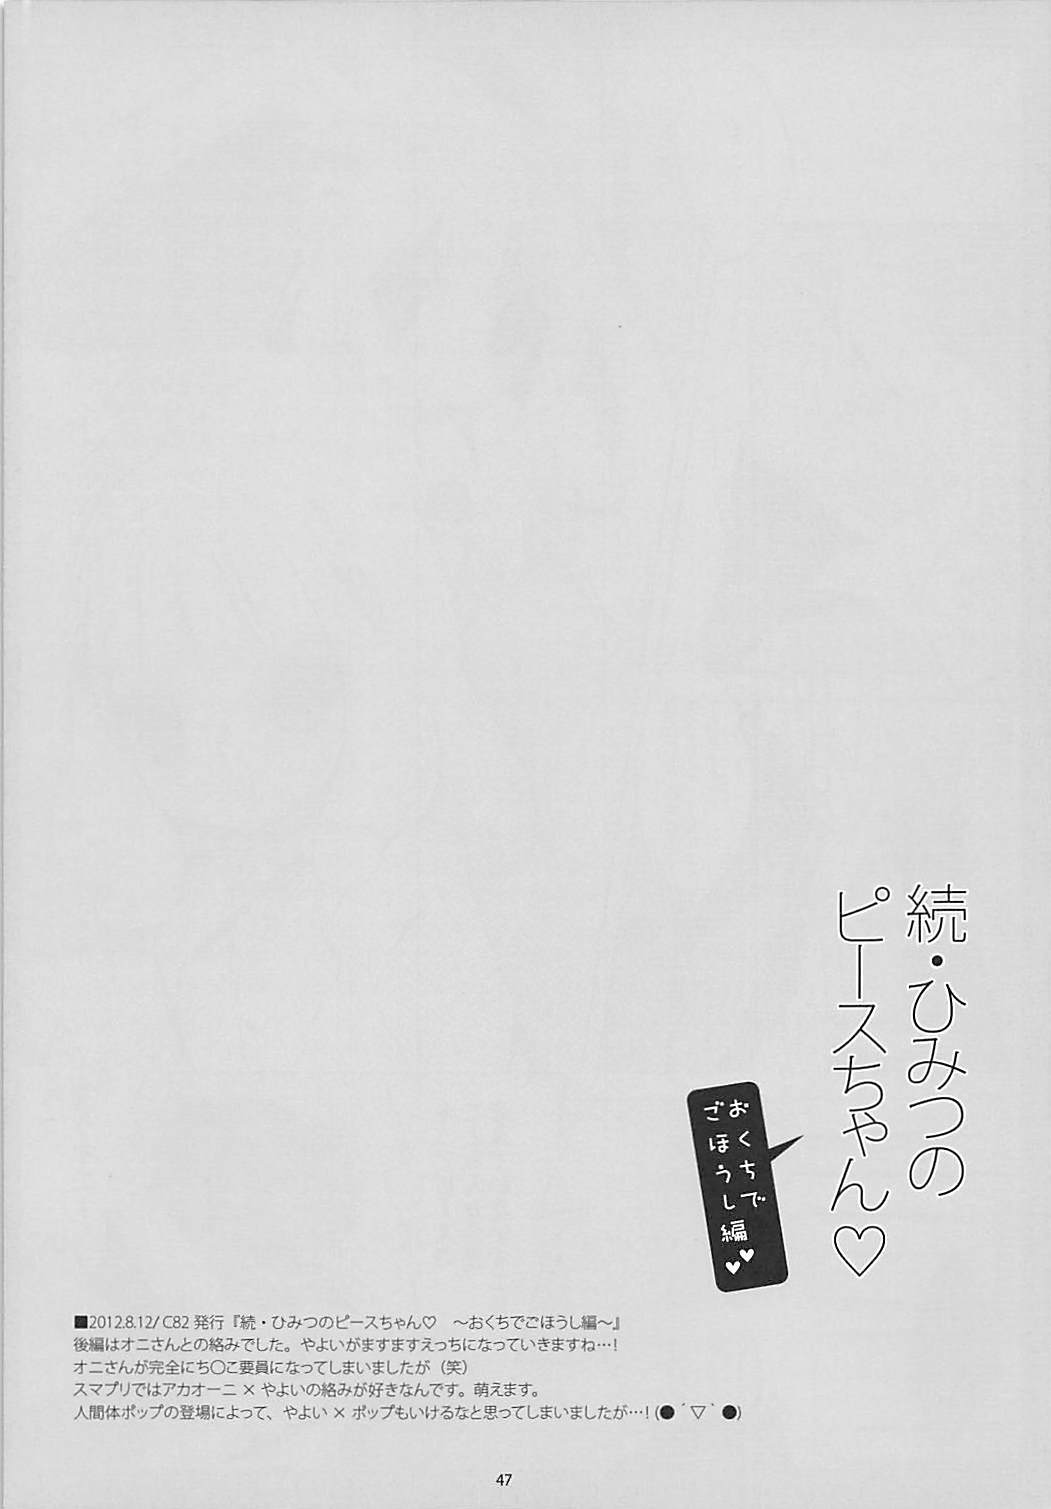 続・ひみつの
ピースちゃん♡
おくちで
ごほうし編♥♥
■2012.8.12/ C82 発行『続・ひみつのピースちゃん♡　～おくちでごほうし編～』
後編はオニさんとの絡みでした。やよいがますますえっちになっていきますね…！
オニさんが完全にち〇こ要員になってしまいましたが（笑）
スマプリではアカオーニ × やよいの絡みが好きなんです。萌えます。
人間体ポップの登場によって、やよい × ポップもいけるなと思ってしまいましたが…！(●´▽`●)
47